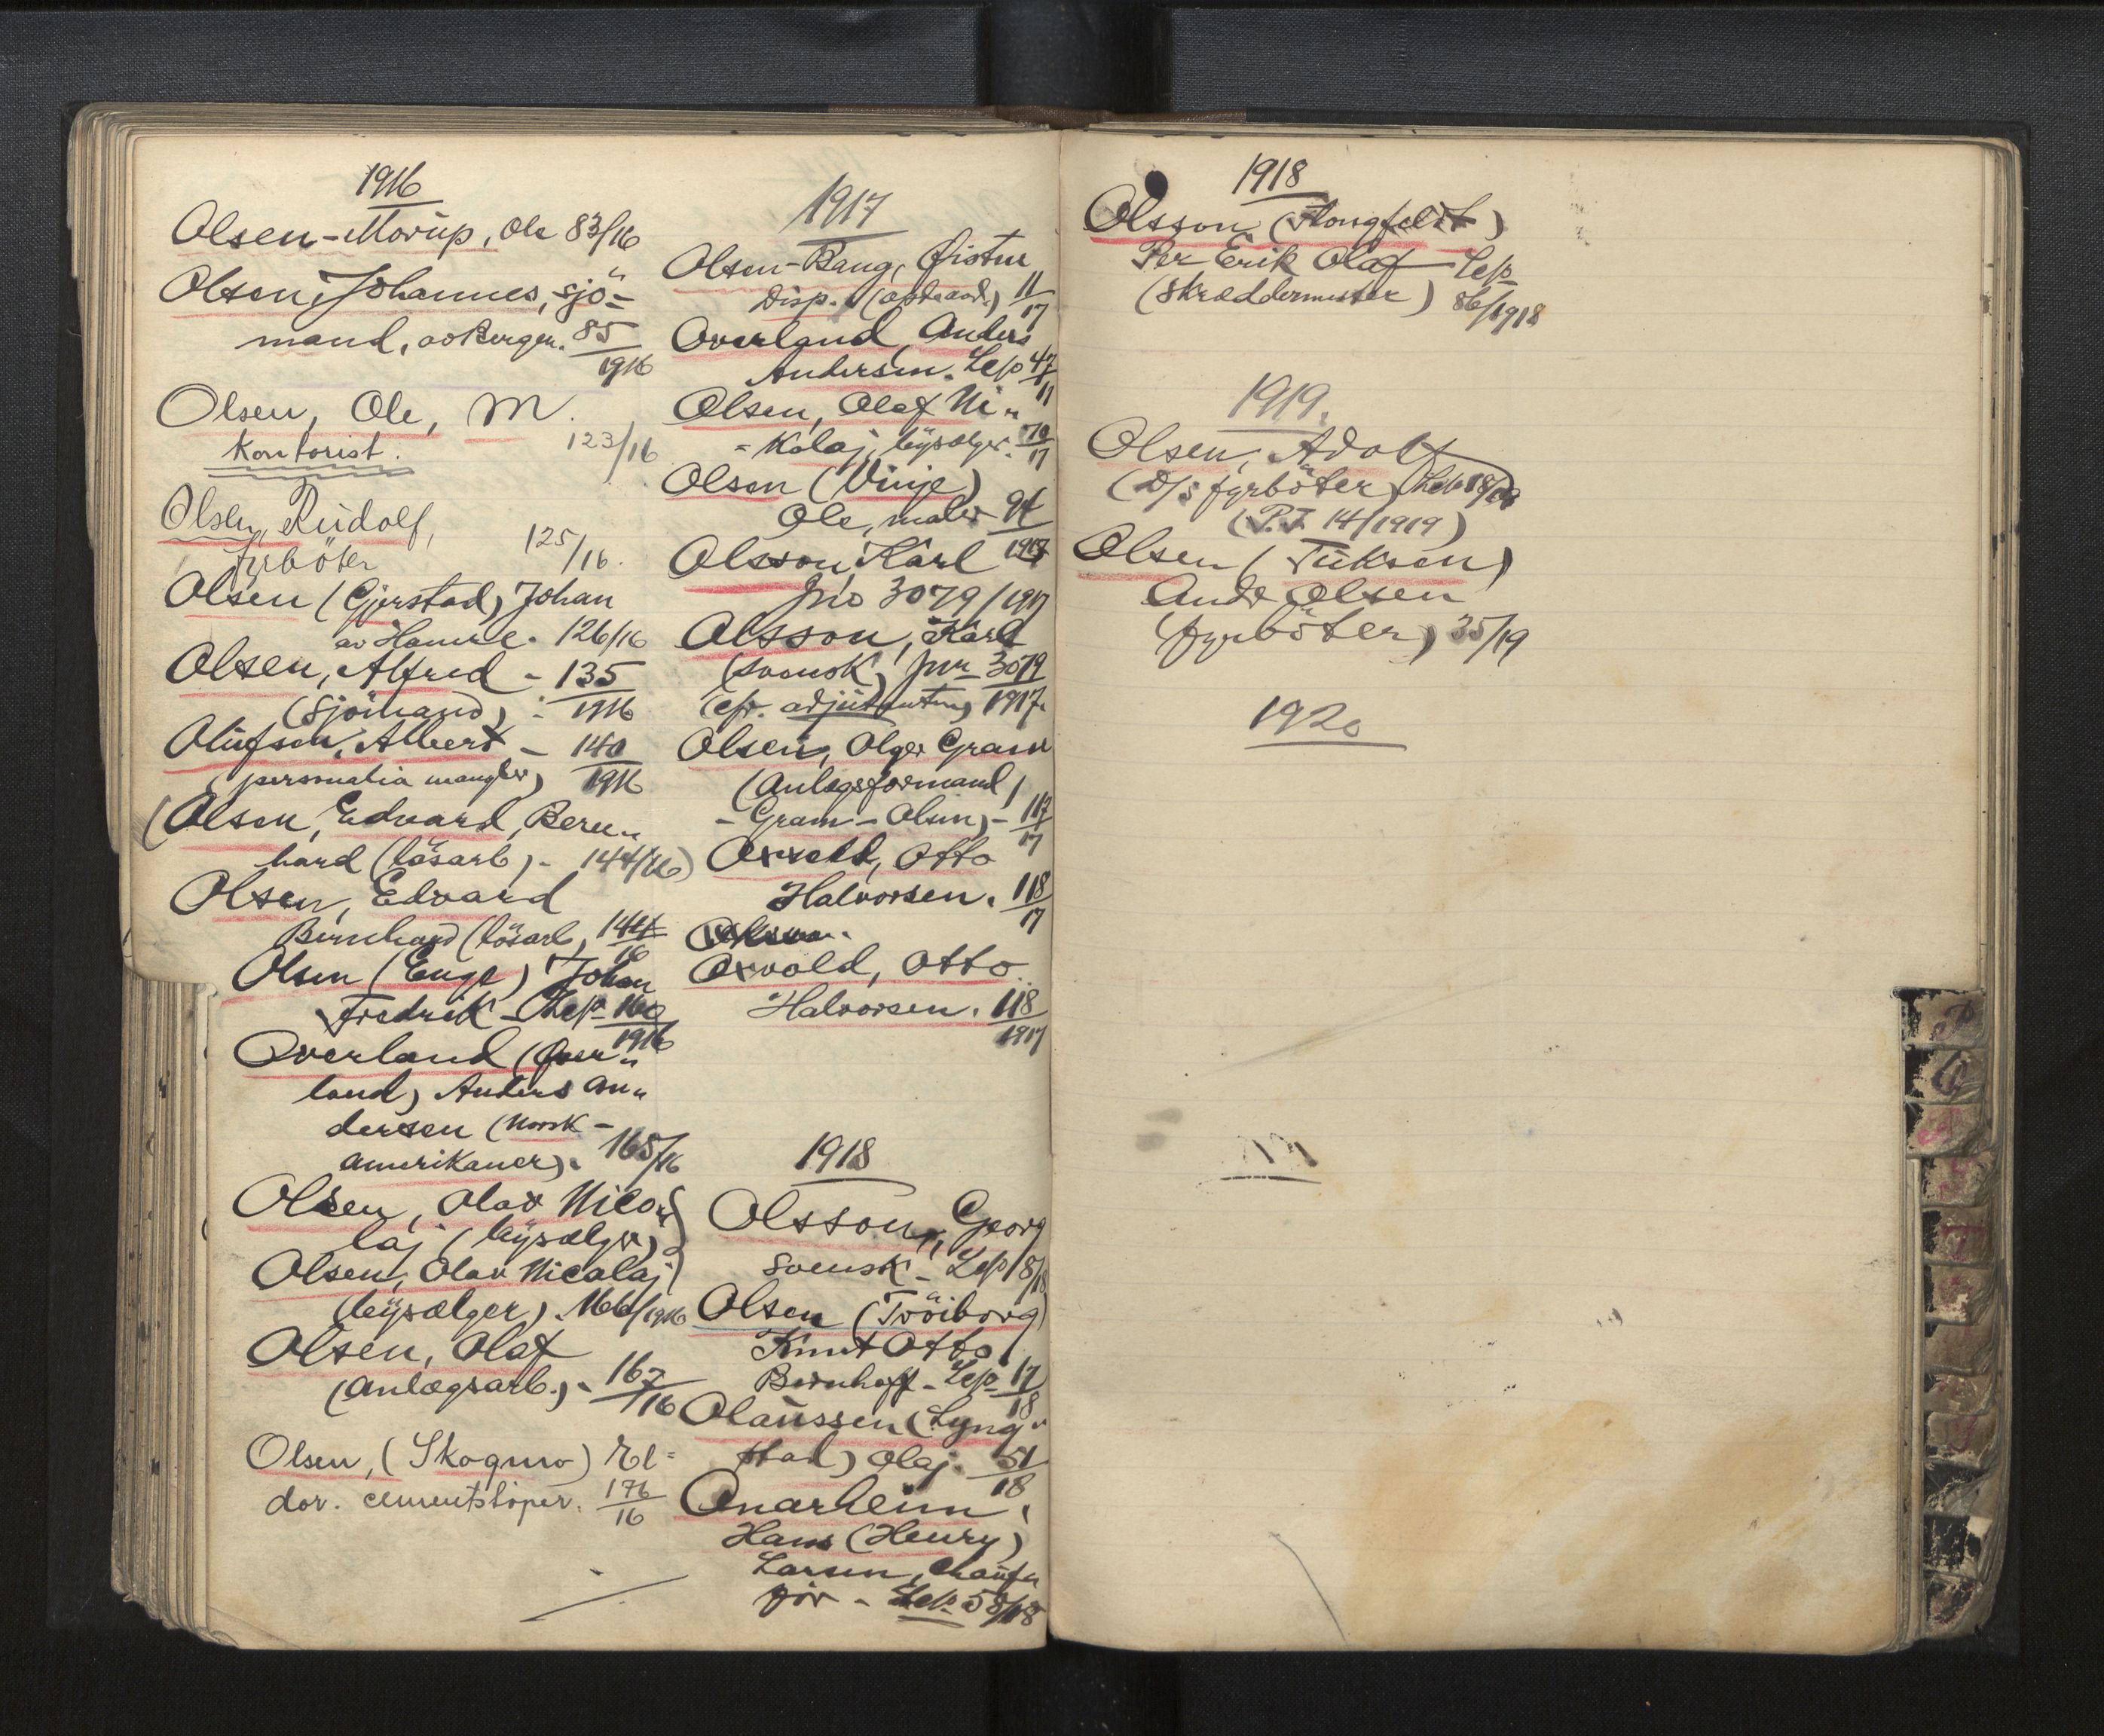 1916
Olsen-Morup, Ole 83/16
Olsen, Johannes, sjö-
mand, av Bergen. 85/1916
Olsen, Ole, M.
Kontorist. 123/16
Olsen, Rudolf,
fyrböter 125/16.
Olsen (Gjerstad) Johan
av Hamre. 126/16
Olsen, Alfred - 135
(Sjömand) - 1916
Olufsen, Albert - 140
(personalia mangler) 1916
(Olsen, Edvard, Bern-
hard (lösarb) - 144/16)
Olsen, Edvard
Bernhard (lösarb, 144/16
Olsen (Enge) Johan
Fredrik - Lep 160/1916
Overland (Over-
land) Anders An-
dersen (norsk-
amerikaner). 165/16
Olsen, Olav Nico-
laj (lÿsælger)
Olsen, Olav Nicolaj
(lÿsælger). 166/1916
Olsen, Olaf
(anlægsarb.) - 167/16
Olsen, (Skogmo) El-
dor. cementstöper. 176/16
1917
Olsen-Bang,
Disp. 11/17
Overland, Anders
Andersen. Lep 47/17
Olsen, Olaf Ni-
kolaj, lÿsælger. 79/17
Olsen (Vinje)
Ole, maler 94/1917
Olsson, Karl
Jno 3079/1917
Olsson, Karl
(svensk) Jnr 3079
(cfr. adjutanten) 1917.
Olsen, Olger Gram
(Anlægsformand)
- Gram-Olsen) - 117/17
Oxvold, Otto
Halvorsen. 118/17
Oxvold, Otto
Halvorsen. 118/1917
1918
Olsson, Georg
svensk - Lep 8/18
Olsen (Tröiborg)
Knut Otto
Bernhoff - Lep 17/18
Olaussen (Lyng-
stad) Olaj. 51/18
Onarheim,
Hans (Henry)
Larsen, chauf-
för - Lep. 58/18
1918
Olsson (Kongfeldt)
Per Erik Olaf Lep
(Skræddermester) 86/1918
1919.
Olsen, Adolf
(D/s fyrböter) Lep 18/08
(P.J. 14/1919)
Olsen (Tuksen)
Olsen
(fyrböter) 35/19
1920